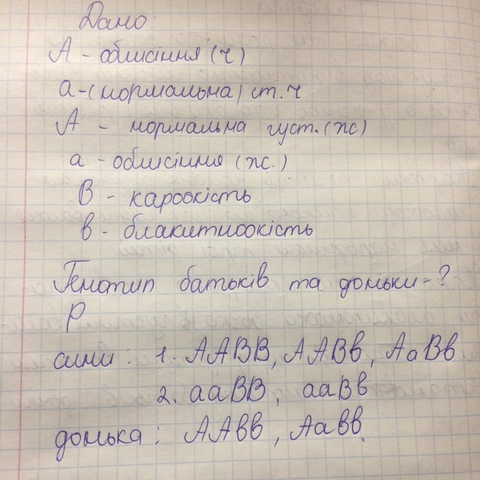 Дано:
А - облисіння (ч)
а - (нормальна) ст. ч
А - нормальна густ. (жс)
а - облисіння (жс.)
В - кароокість
в - блакитноокість
Генотип батьків та доньки - ?
Р
сини: 1. ААВВ, ААВв, АаВв
2. ааВВ, ааВв
донька: ААвв, Аавв.